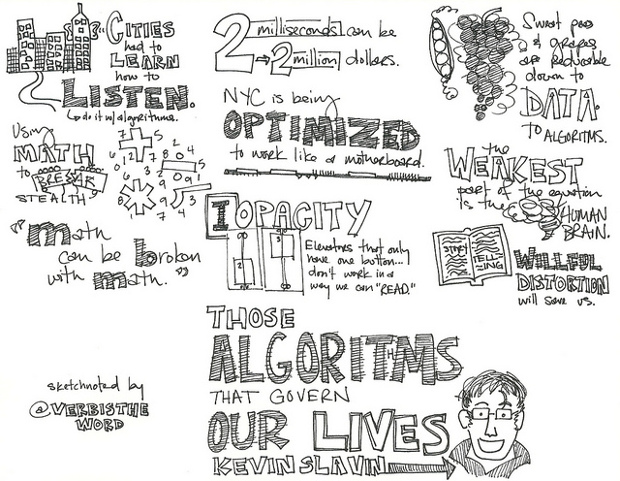 CITIES
had to
LEARN
how to
LISTEN.
do it w/ algorithms.
Using
MATH
to BREAK
STEALTH
"math
can be broken
with math."
2 milliseconds can be
2 million dollars.
NYC is being
OPTIMIZED
to work like a motherboard.
I OPACITY
Elevators that only
have one button...
don't work in a
way we can "READ."
Sweet peas
& grapes
are reducible
down to
DATA.
TO ALGORITHMS.
the
WEAKEST
part of the equation
is the HUMAN
BRAIN.
STORY TELL
IZING
WILLFUL
DISTORTION
will save us.
THOSE
ALGORITHMS
THAT GOVERN
OUR LIVES
KEVIN SLAVIN
sketchnoted by
@VERBISTHE
WORD